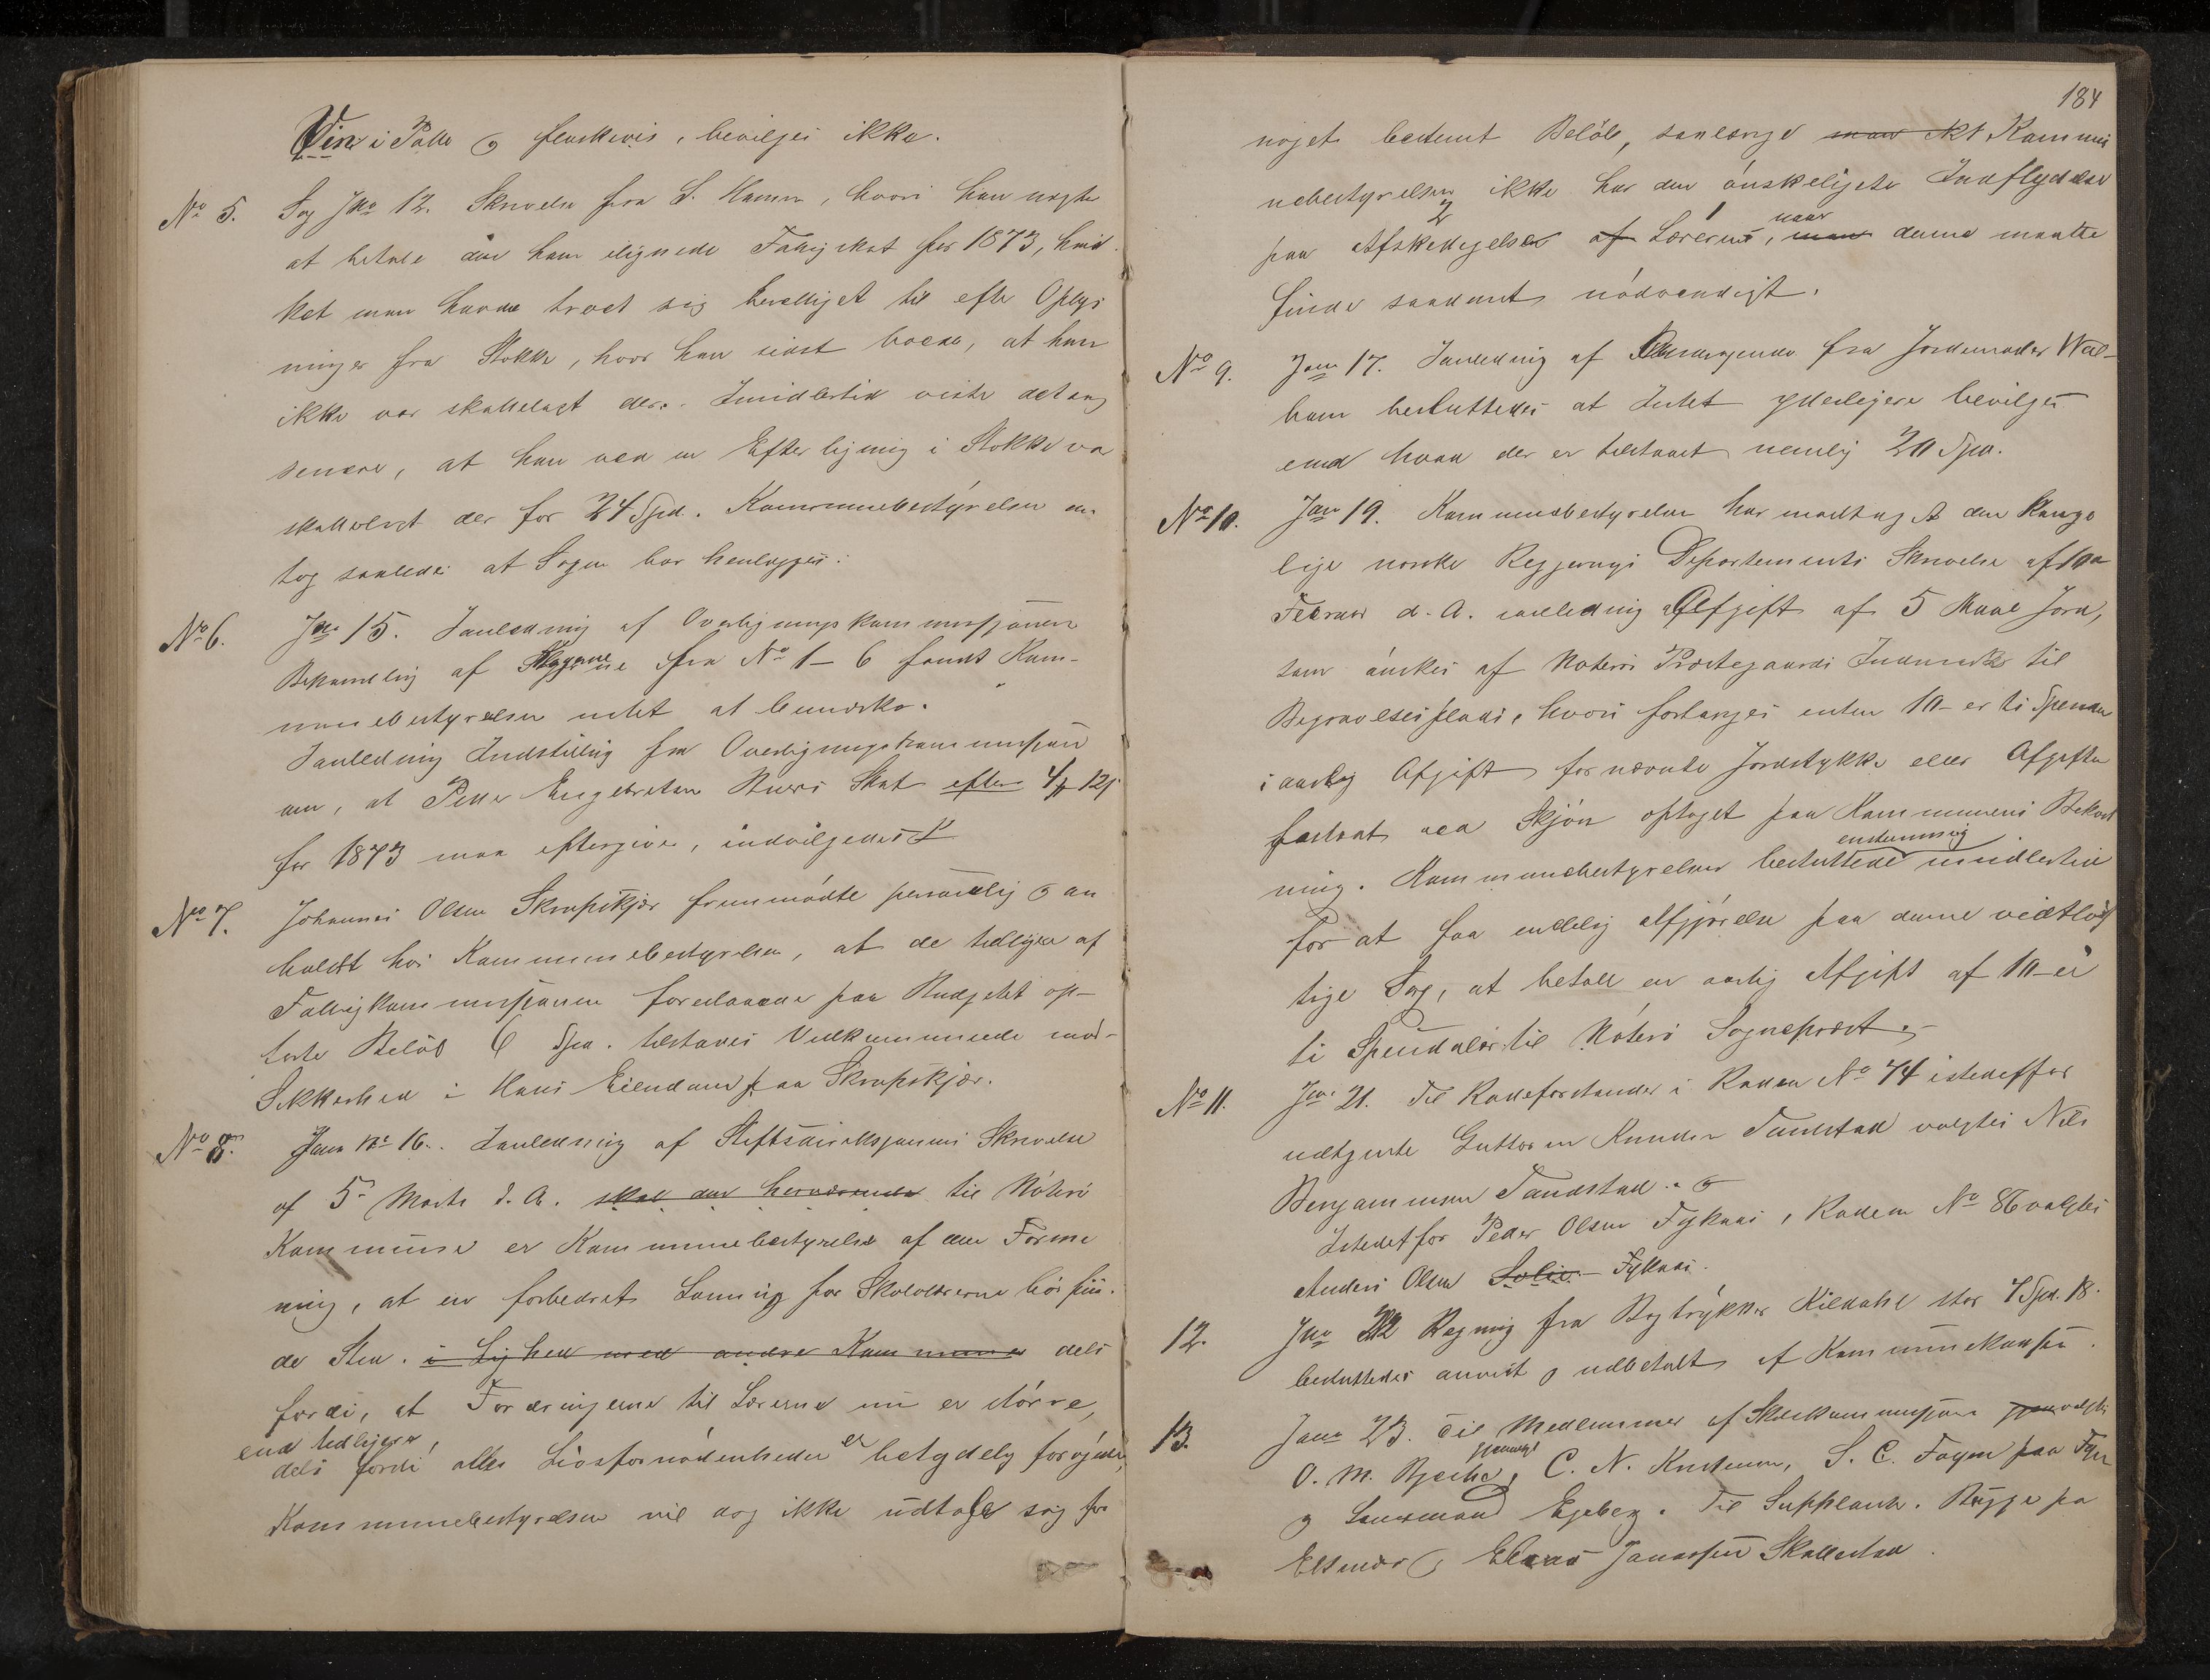 Vin i Potte og flaskevis, bevilges ikke.
No 5. Sag Jno 12. Skrivelse fra S. Hansen, hvori han nægter
at betale den ham ilignede Fattigskat for 1873, hvil
ket man havde troet sig berettiget til efter Oplys
ninger fra Stokke, hvor han sidst boede, at han
ikke var skattelagt der. Imidlertid viste det sig
senere, at han ved en Efterligning i Stokke var
skattelagt der for 24 Spd. Kommunebestyrelsen an
tog saaledes at Sagen bør henlægges.
No 6. Jno 15. I anledning af Overligningskommissjonens
Behandling af Klagerne fra No 1 – 6 fandt Kom-
munebestyrelsen intet at bemærke.
I anledning Indstilling fra Overligningskommissjon
om, at Peder Engebretsen Skat efter 4 12
for 1873 maa eftergives, indvilgedes
No 7. Johannes Olsen Skrapskjær fremmødte personlig og an
holdt hos Kommunebestyrelsen, at de tidligere af
Fattigkommissjonen foreslaaede paa Budgetet op-
førte Beløb 6 Spd. tilstaaes Vedkommende mod
Sikkerhed i Hans Eiendom paa Skrapskjær.
No 8. Jour No 16. I anledning af Stiftsdireksjonens Skrivelse
af 5 Marts d. A. skal den herværende til Nøterø
Kommune er Kommunebestyrelse af den Forme
ning, at en forbedret Lønning for Skolelærerne bør fin-
de Sted. i Lighed med andre Kommuner dels
fordi, at Fordringerne til Lærerne nu er større,
end tidligere,
dels fordi alle Livsfornødenheder er betydelig forøgede,
Kommunebestyrelsen vil dog ikke udtale sig for
184
noget bestemt Beløb, saalænge man ikke Kommu
nebestyrelsen ikke har den ønskeligste Indflydelse
paa Afskedigelse af Lærerne, naar man denne maatte
finde saadant nødvendigt.
No 9. Jour 17. I anledning af Andragende fra Jordemoder Wel-
ham besluttedes at Intet yderligere bevilges
end hvad der er tilstaaet nemlig 20 Spd.
No 10. Jour 19. Kommunebestyrelsen har modtaget den Konge
lige norske Regjerings Departements Skrivelse af 10de
Februar d. A. anledning Afgift af 5 Maal Jord,
som ønskes af Nøterø Præstegaards Indmark til
Begravelsesplads, hvori forlanges enten 10 – er ti Speciedaler
i aarlig Afgift for nævnte Jordstykke eller Afgiften
fastsat ved Skjøn optaget paa Kommunens Bekost
ning. Kommunebestyrelsen besluttede enstemmig imidlertid
for at faa endelig Afgjørelse paa denne vidtløf
tige Sag, at betale en aarlig Afgift af 10 – er
ti Speciedaler til Nøterø Sognepræst.
No 11. Jno 21. Til Rodeforstander i Roden No 74 istedetfor
udtjente Guttorm Knudsen Tandstad valgtes Nils
Benjaminsen Tandstad. og
Istedetfor Peder Olsen Fyknæs, Roden No 86 valgtes
Anders Olsen Solie – Fyknæs.
12. Jno 22 Regning fra Bogtrykker Kildahl stor 4 Spd. 18.
besluttedes anvist og udbetalt af Kommunekassen.
13. Jour 23. Til Medlemmer af Skolekommissjonen gjen valgtes
O. M. Bjerke, gjenvalgt C. N. Knudsen, S. C. Fagen paa
og Lensmand Egeberg. Til Supplanter. Bugge paa
Elsnæs og Elias Jonassen Skallestad.